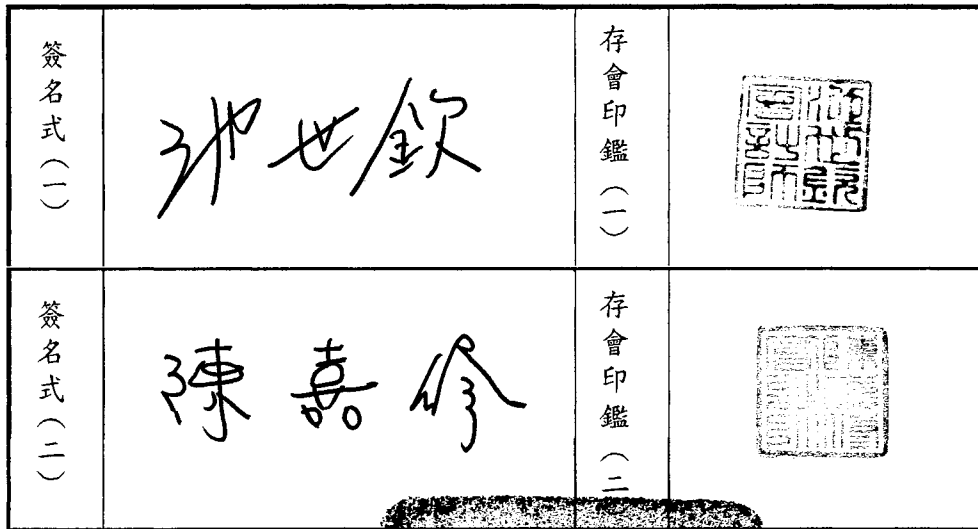 簽名式（一）
池世欽
存會印鑑（一）
簽名式（二）
陳嘉修
存會印鑑（二